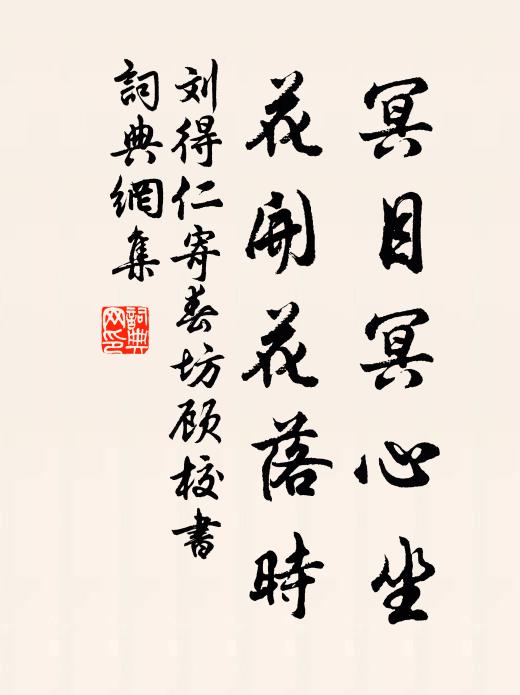 冥目冥心坐
花開花落時
刘得仁寄春坊顾校書
詞典網集
詞典网印